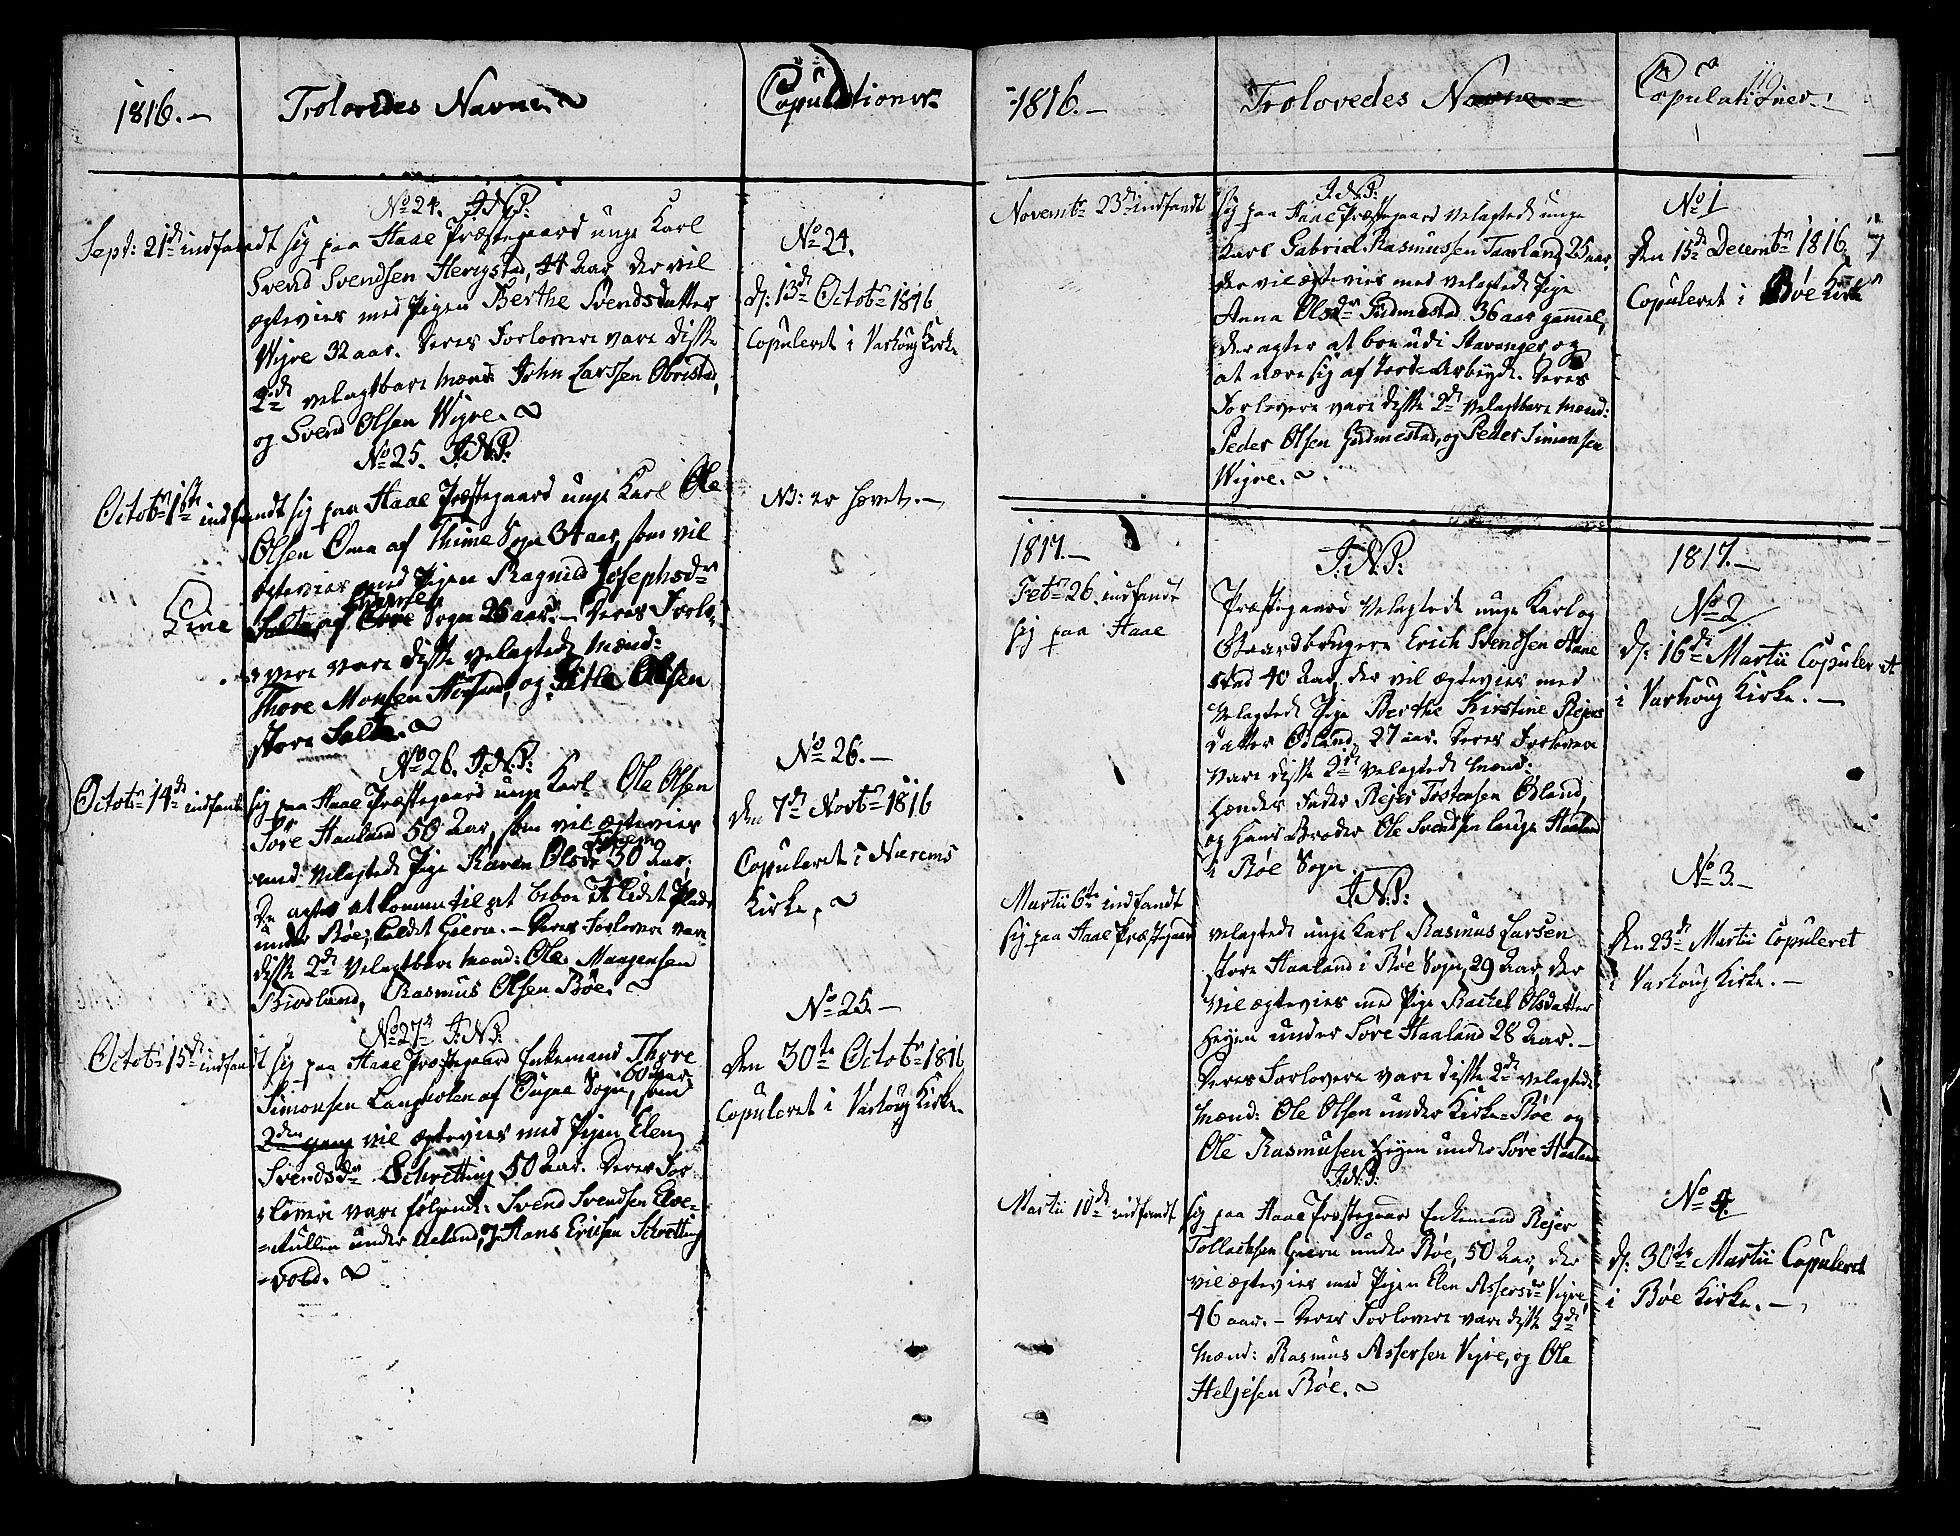 1816.-
Troloredes Navne.
Copulationer
No 24. J.N.J:
Sept: 21de indfandt sig paa Haae Præstegaard unge Karl
Svend Svendsen Herigstad, 44 Aar, der vil
ægtevies med Pigen Berthe Svendsdatter
Wigre 32 aar. Deres Forlovere vare disse
2de velagtbare Mænd John Larssen Obrestad,
og Svend Olsen Wigre.
No 24.
d: 13de Octobr 1816
Copuleret i Varhoug Kirke
No 25. J.N.J:
Octobr 1ste indfandt sig paa Haae Præstegaard unge Karl Ole
Olsen Oma af Thime Sogn 34 aar, som vil
ægtevies med Pigen Ragnild Josephsdr
Line
af Sogn 26 aar. - Deres Forlo-
vere vare disse velagtede Mænd:
Thore Monsen og Olsen
store Salte.
NB: er hævet.-
No 26. J.N.J:
Octobr 14de indfandt sig paa Haae Præstegaard unge Karl Ole Olsen
Søre Haaland 50 Aar, som vil ægtevies
med Velagtede Pige Karen Olsdr 30 Aar.
De agter at komme til at beboe et lidet Plads
under Bøe, kaldet Geern. - Deres Forlovere vare
disse 2de Velagtbare Mænd: Ole Maagensen
Biorland, Rasmus Olsen Bøe.
No 26.-
den 7de Novbr 1816
Copuleret i Nærems
Kirke.
No 27de J.N.J:
Octobr 15de indfandt sig paa Haae Præstegaard Enkemand Thore
60 aar
Simonsen Langholen af Ougne Sogn, som
2den gang vil ægtevies med Pigen Elen
Svendsdr Schretting 50 Aar. Deres For-
lovere vare følgende: Svend Svendsen
under Aeland, og Hans Ericsen Schretting
vold.
No 25.-
den 30te Octobr 1816
Copuleret i Varhoug Kirke.
1816.-
Trolovedes Navne
Copulationer.
J.N.J:
Novembr 23de indfandt sig paa Haae Præstegaard Velagtede unge
Karl Gabriel Rasmussen Taarland, 25 aar,
der vil ægtevies med velagtede Pige
Anna Olsdr Gudmestad 36 aar gammel,
der agter at boe udi Stavanger og
at nære sig af Jord-Arbeyde. Deres
Forlovere vare disse 2de Velagtbare Mænd:
Peder Olsen Gudmestad, og Peder Simonsen
Wigre.
No 1
den 15de Decembr 1816
Copuleret i Bøe Kirke
1817.-
J.N.J:
1817.-
Febr 26. indfandt
sig paa Haae
Præstegaard Velagtede unge Karl og
Gaardbrugere Erich Svendsen Haae
stad 40 Aar, der vil ægtevies med
Velagtede Pige Berthe Kirstine Rejers
datter Ødland, 27 aar. Deres Forlovere
vare disse 2de velagtede Mænd:
hendes Fader Rejer Tostensen Ødland,
og hans Broder Ole Svendsen lange Haaland
i Bøe Sogn.
No 2
d: 16de Martii Copuleret
i Varhoug Kirke.-
J.N.J:
Martii 6te indfandt
sig paa Haae Præstegaard
velagtede unge Karl Rasmus Larsen
store Haaland i Bøe Sogn, 29 Aar, der
vil ægtevies med Pige Rachel Olsdatter
Heyen under Søre Haaland 28 Aar.-
Deres Forlovere vare disse 2de velagtede
Mænd: Ole Olsen under Kirke-Bøe og
Ole Rasmusen Heyen under Søre Haaland
No 3.-
den 23de Martii Copuleret
i Varhoug Kirke.-
J.N.J:
Martii 10de indfandt sig paa Haae Præstegaard Enkemand Rejer
Tollachsen Geern under Bøe, 50 Aar, der
vil ægtevies med Pigen Elen Assersdr Vigre,
46 aar.- Deres Forlovere vare disse 2de
Mænd: Rasmus Assersen Vigre, og Ole
Heljesen Bøe.
No 4.
d: 30te Martii Copuleret
i Bøe Kirke.-